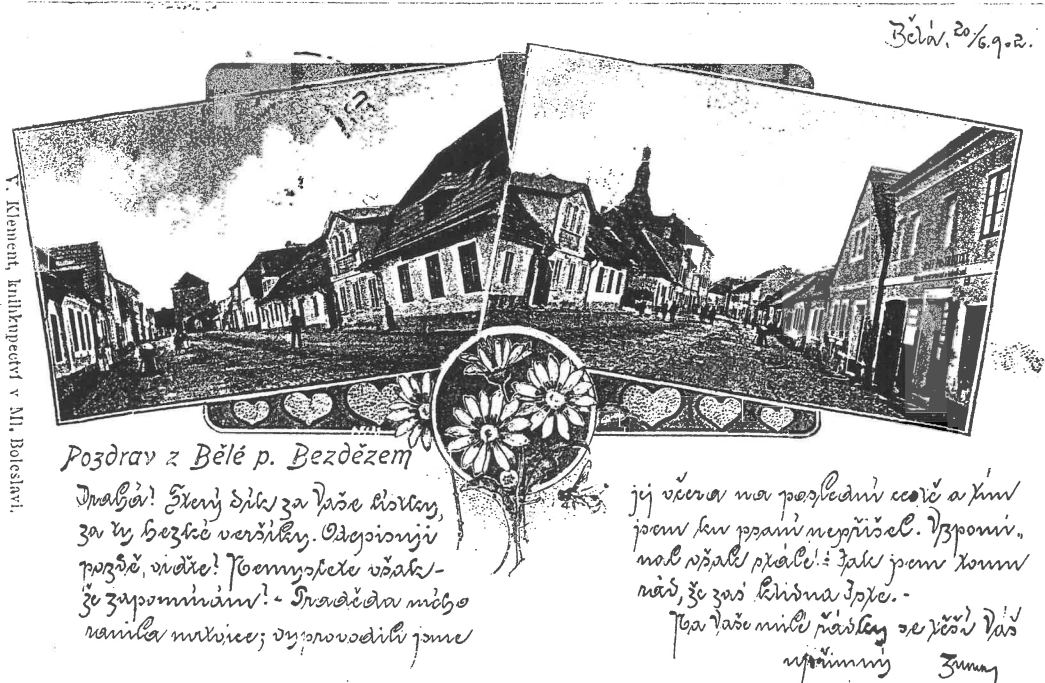 Bělá, 20/6.902.
V. Klement, knihkupectví v Ml. Boleslavi.
Pozdrav z Bělé p. Bezdězem
Drahá! Vřelý dík za Vaše lístky,
za ty hezké veršíky. Odepisuji
pozdě, viďte! Nemyslete však-
že zapomínám! - Praděda mého
ranila mrtvice; vyprovodili jsme
jej včera na poslední cestě a tím
jsem ku psaní nepřišel. Vzpomí-
nal však stále! Jak jsem tomu
rád, že zas klidna jste. -
Na Vaše milé řádky se těší Váš
upřímný